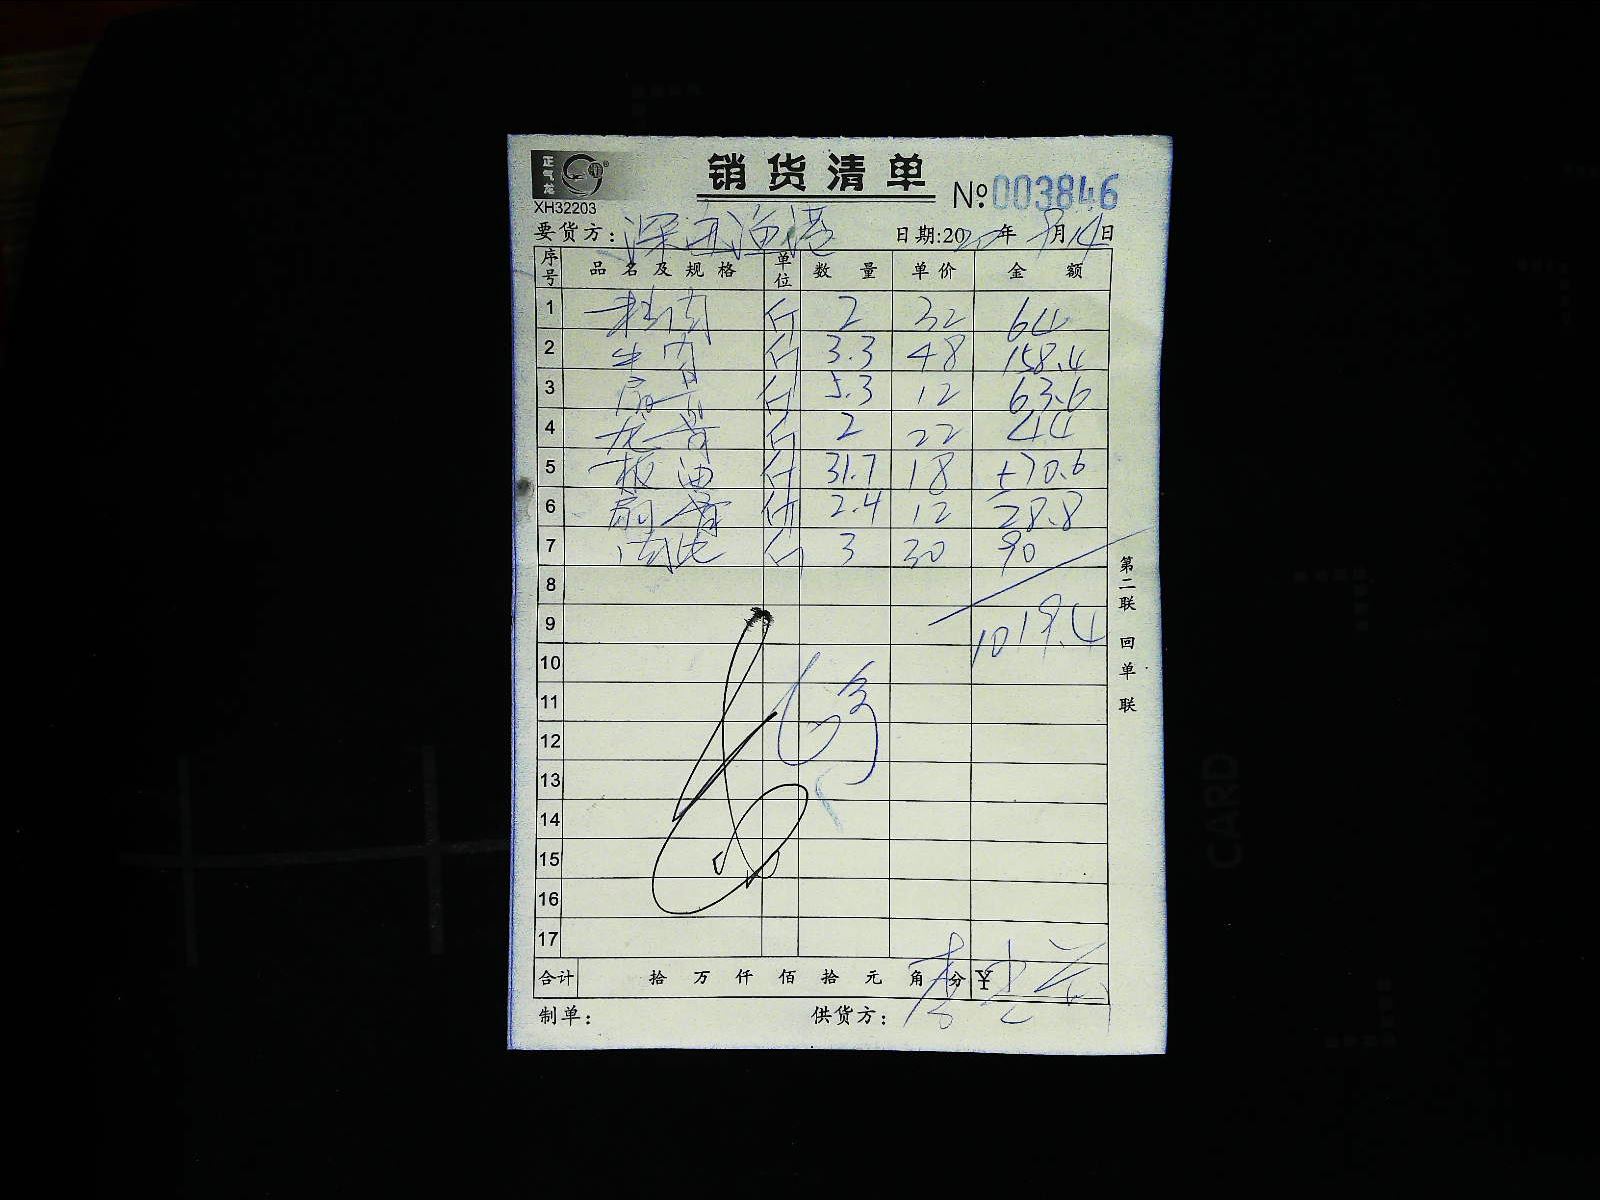 正气龙
XH32203
销货清单
№:003846
要货方: 深
日期:2020年9月14日
序号 品名及规格 单位 数量 单价 金额
1 肉 斤 2 32 64
2 牛肉 斤 3.3 48 158.4
3 扇骨 斤 5.3 12 63.6
4 龙骨 斤 2 22 44
5 板油 斤 31.7 18 570.6
6 扇骨 斤 2.4 12 28.8
7 肉 斤 3 30 90
8
9 1019.4
10
11
12
13
14
15
16
17
合计 拾 万 仟 佰 拾 元 角 分 ¥
制单:
供货方: 李
第二联 回单联
CARD